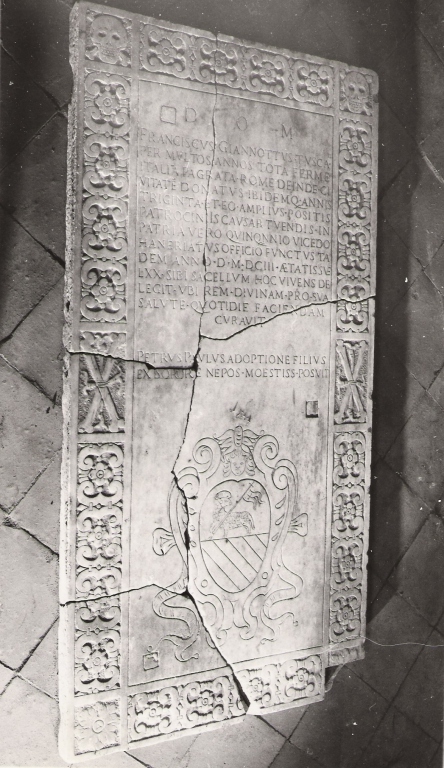 D O M
FRANCISCVS GIANNOTTVS TVSCA
PER MVLTOS ANNOS TOTA FERME
ITALIA PAGRATA ROME DEINDE CI
VITATE DONATVS IBIDEMQ ANNIS
TRIGINTA ET EO AMPLIVS POSITIS
PATROCINIIS CAVSAR TVENDIS IN
PATRIA VERO QVINQNNIO VICEDO
HANERIATVS OFFICIO FVNCTVS TA
DEM ANNO D M D C III ÆTATIS SVÆ
LXX SIBI SACELLVM HOC VIVENS DE
LEGIT VBI REM DIVINAM PRO SVA
SALVTE QVOTIDIE FACIENDAM
CVRAVIT
PETRVS PAVLVS ADOPTIONE FILIVS
EX SORORE NEPOS MOESTISS POSVIT